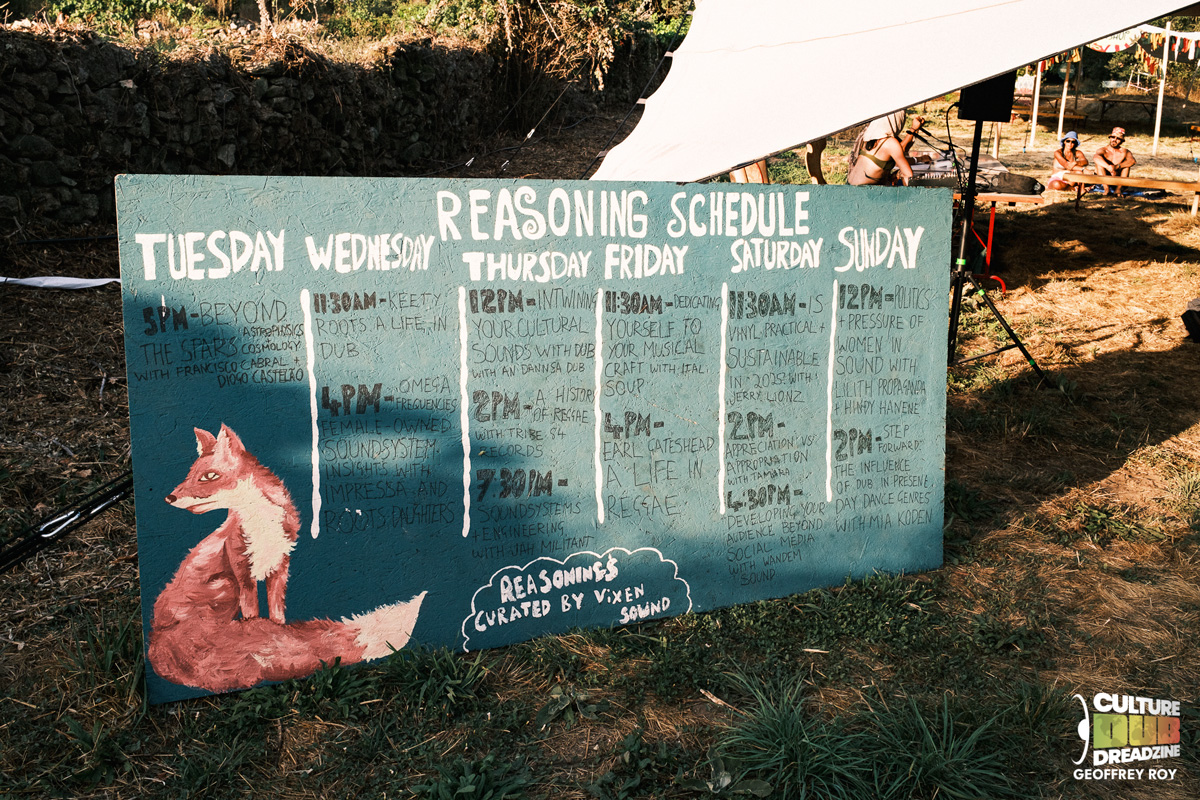 REASONING SCHEDULE
TUESDAY
5PM-BEYOND
THE SPARS
ASTROPHYSICS
COSMOLOGY
WITH FRANCISCO CABRAL +
DIOGO CASTELÃO
WEDNESDAY
11:30AM-KEETY
ROOTS A LIFE IN
DUB
4PM-OMEGA
FREQUENCIES
FEMALE-OWNED
SOUNDSYSTEM
INSIGHTS WITH
IMPRESSA AND
ROOTS DAUGHTERS
THURSDAY
12PM-INTWINING
YOUR CULTURAL
SOUNDS WITH DUB
WITH AN DANNSA DUB
2PM-A HISTORY
OF REGGAE
WITH TRIBE 84
RECORDS
7.30PM-
SOUNDSYSTEMS
+ ENGINEERING
WITH JAH MILITANT
FRIDAY
11:30AM-DEDICATING
YOURSELF TO
YOUR MUSICAL
CRAFT WITH ITAL
SOUP
4PM-
EARL GATESHEAD
A LIFE IN
REGGAE
SATURDAY
11:30AM-IS
VINYL PRACTICAL +
SUSTAINABLE
IN 2025? WITH
JERRY LIONZ
2PM-
APPRECIATION VS
APPROPRIATION
WITH TAMARA
4:30PM-
DEVELOPING YOUR
AUDIENCE BEYOND
SOCIAL MEDIA
WITH WANDEM
SOUND
SUNDAY
12PM-POLITICS
+ PRESSURE OF
WOMEN IN
SOUND WITH
LILITH PROPAGANDA
+ HINDY HANENE
2PM-STEP
FORWARD:
THE INFLUENCE
OF DUB IN PRESENT
DAY DANCE GENRES
WITH MIA KODEN
REASONINGS
CURATED BY VIXEN
SOUND
CULTURE
DUB
DREADZINE
GEOFFREY ROY